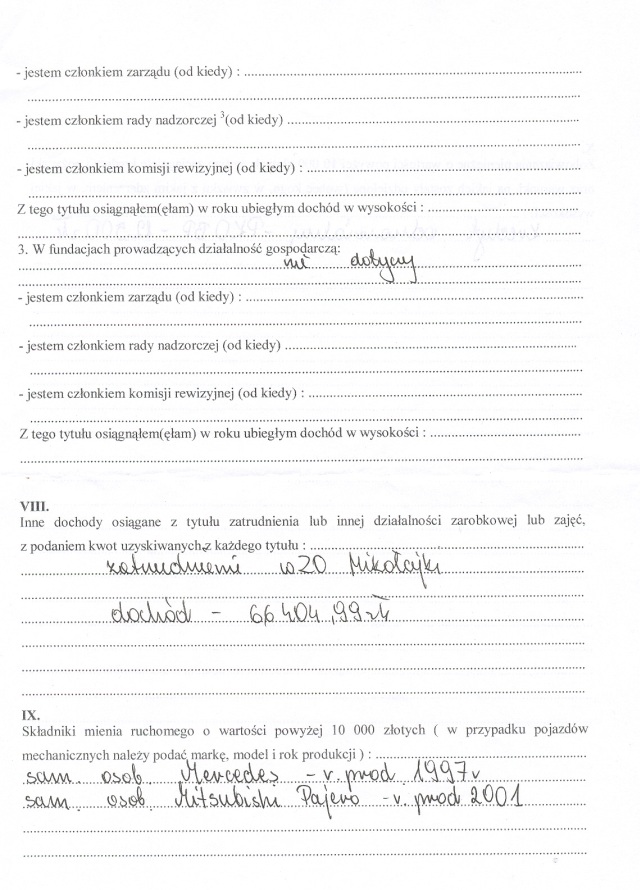 - jestem członkiem zarządu (od kiedy) :
- jestem członkiem rady nadzorczej ³(od kiedy)
- jestem członkiem komisji rewizyjnej (od kiedy) :
Z tego tytułu osiągnąłem(ęłam) w roku ubiegłym dochód w wysokości :
3. W fundacjach prowadzących działalność gospodarczą:
nie dotyczy
- jestem członkiem zarządu (od kiedy) :
- jestem członkiem rady nadzorczej (od kiedy)
- jestem członkiem komisji rewizyjnej (od kiedy) :
Z tego tytułu osiągnąłem(ęłam) w roku ubiegłym dochód w wysokości :
VIII.
Inne dochody osiągane z tytułu zatrudnienia lub innej działalności zarobkowej lub zajęć,
z podaniem kwot uzyskiwanych z każdego tytułu :
Mikołajki
dochód - 66 404,99 zł
IX.
Składniki mienia ruchomego o wartości powyżej 10 000 złotych ( w przypadku pojazdów
mechanicznych należy podać markę, model i rok produkcji ) :
sam. osob. Mercedes - r. prod. 1997 r
sam. osob. Mitsubishi Pajero - r. prod 2001